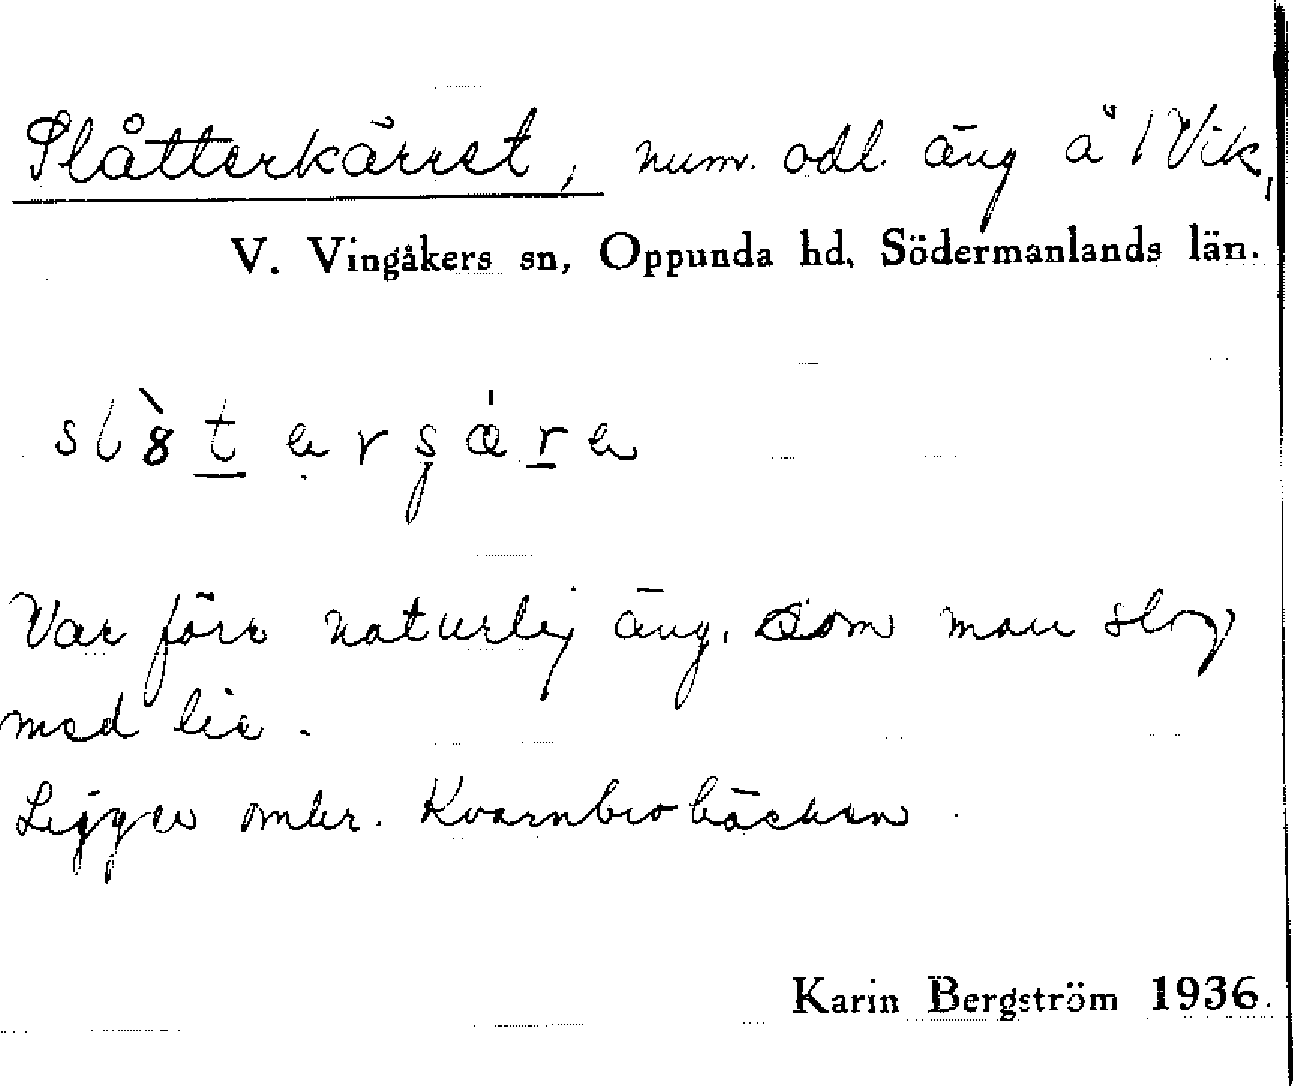 Slåtterkärret, num. odl. äng å 1 Vik,
V. Vingåkers sn, Oppunda hd, Södermanlands län.
Var förr naturlig äng, som man slog
med lie.
Ligger omkr. Kvarnbrobäcken.
Karin Bergström 1936.